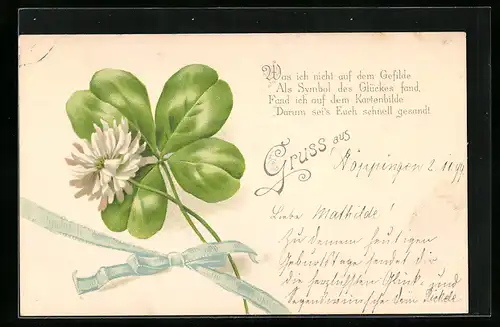 Was ich nicht auf dem Gefilde
Als Symbol des Glückes fand,
Fand ich auf dem Kartenbilde
Darum sei's Euch schnell gesandt
Gruss aus
Göppingen 2
Liebe Mathilde!
Zu Deinem heutigen
Geburtstage sendet dir
die herzlichsten Glück- und
Segenswünsche Dein Rickele